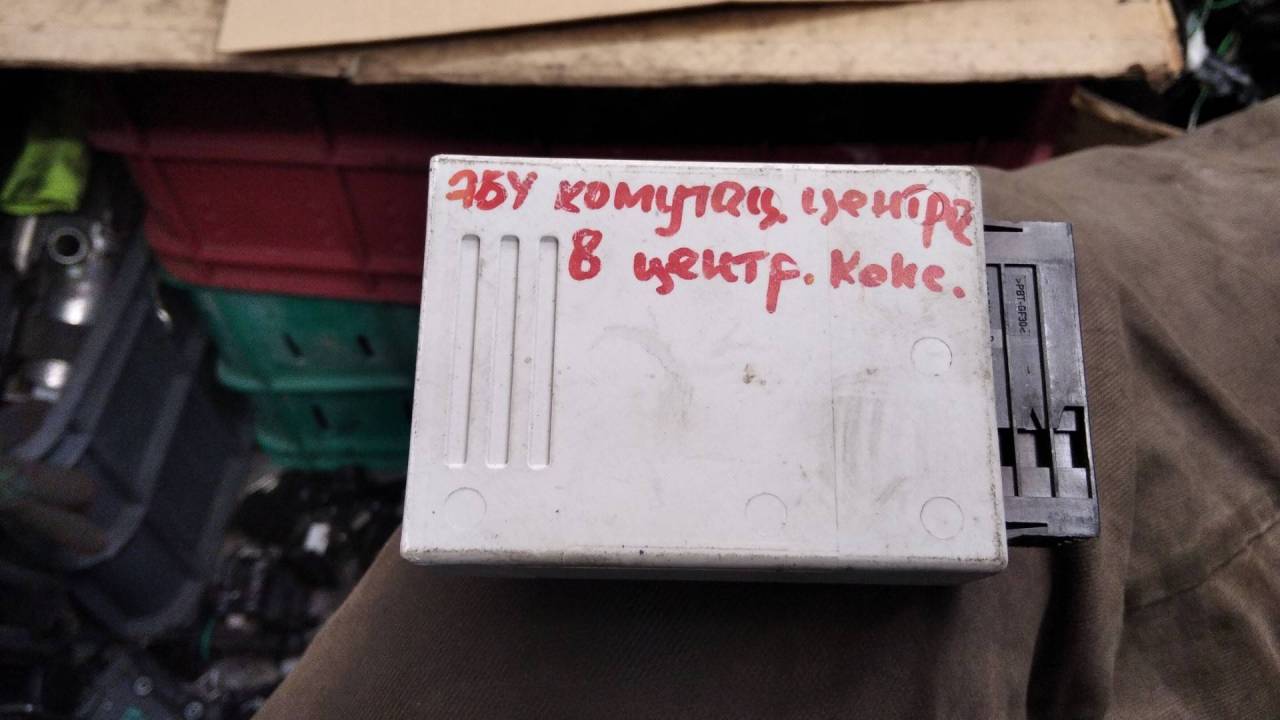 ЭБУ комутац центра
в центр. конс.
>PBT-GF30<